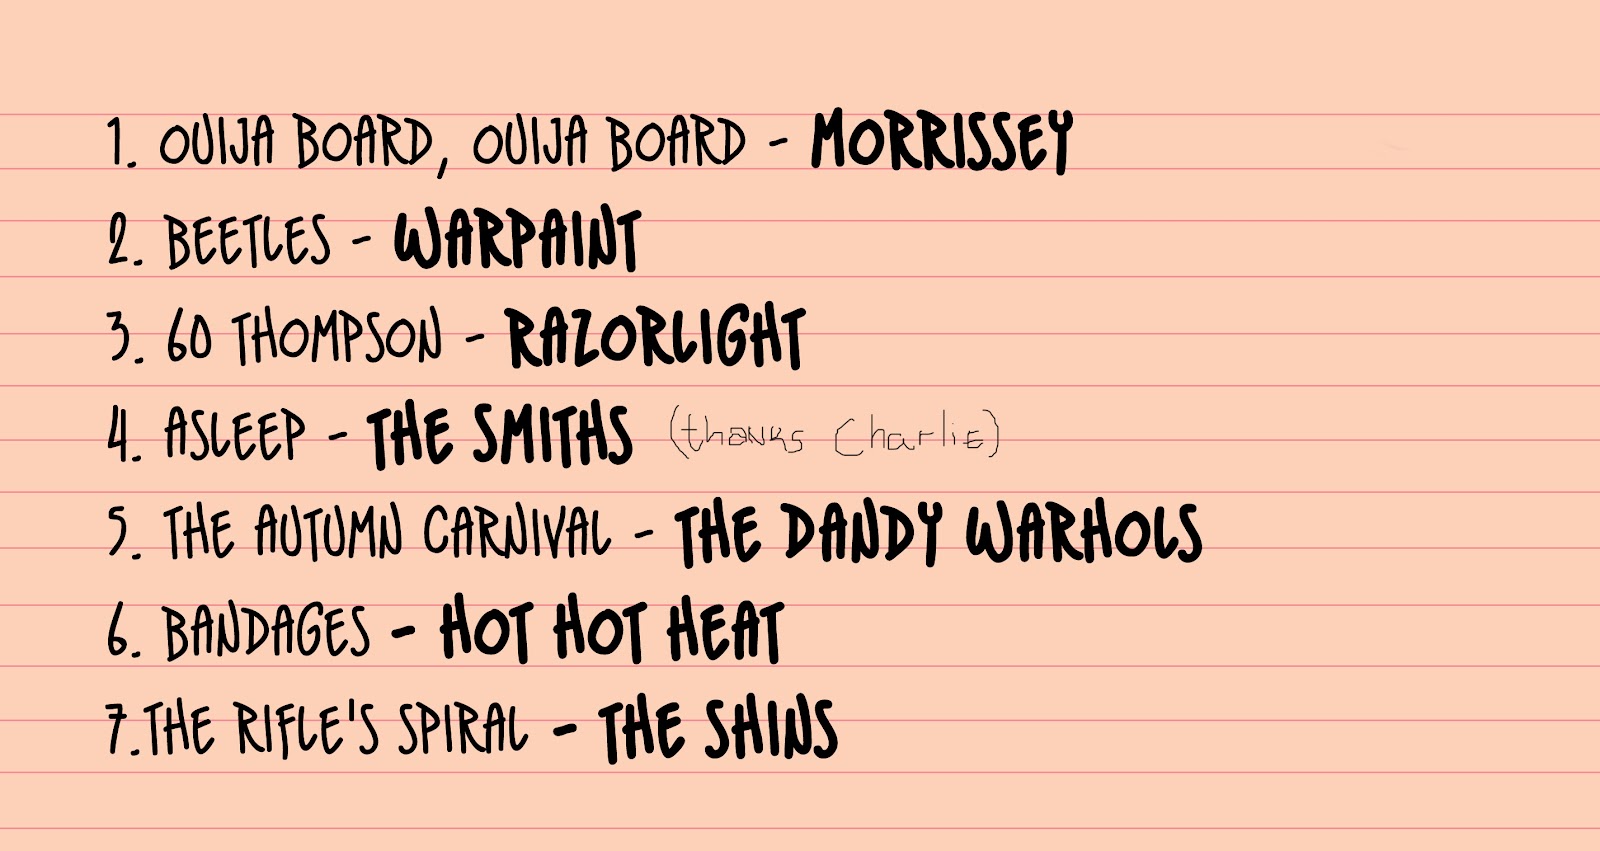 1. OUIJA BOARD, OUIJA BOARD - MORRISSEY
2. BEETLES - WARPAINT
3. 60 THOMPSON - RAZORLIGHT
4. ASLEEP - THE SMITHS (thanks Charlie)
5. THE AUTUMN CARNIVAL - THE DANDY WARHOLS
6. BANDAGES - HOT HOT HEAT
7.THE RIFLE'S SPIRAL - THE SHINS